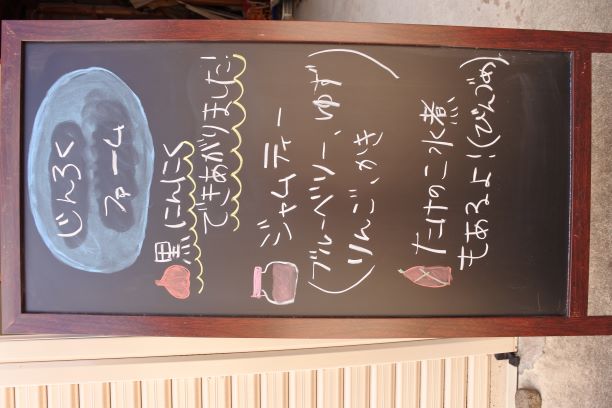 じんろく
ファーム
黒にんにく
できあがりました!
ジャムティー
(ブルーベリー、ゆず
りんご、かき)
たけのこ水煮
もあるよ!(びんづめ)